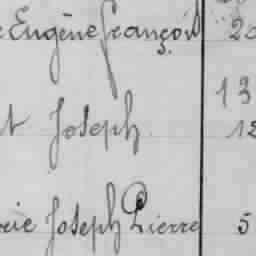 Eugène François 20
13
Joseph 12
Joseph Pierre 5